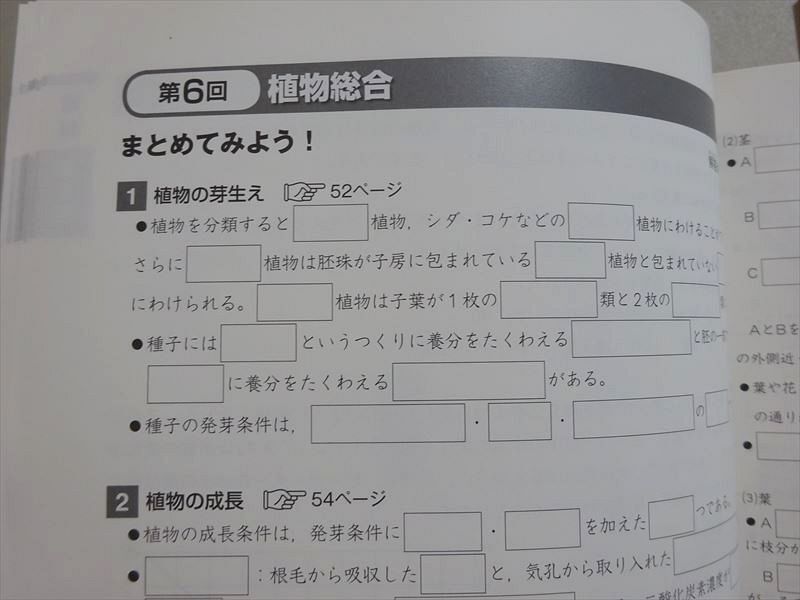 第6回 植物総合
まとめてみよう！
1 植物の芽生え 52ページ
●植物を分類すると 植物，シダ・コケなどの 植物にわけること
さらに 植物は胚珠が子房に包まれている 植物と包まれていない
にわけられる。 植物は子葉が1枚の 類と2枚の
●種子には というつくりに養分をたくわえる と胚の一部
に養分をたくわえる がある。
●種子の発芽条件は， ・ ・ の
2 植物の成長 54ページ
●植物の成長条件は，発芽条件に ・ を加えた つである。
● ：根毛から吸収した と，気孔から取り入れた
二酸化炭素濃度が
(2)茎
●A
B
C
AとBを
の外側近
●葉や花
の通り
●
(3)葉
●A
に枝分か
B
が